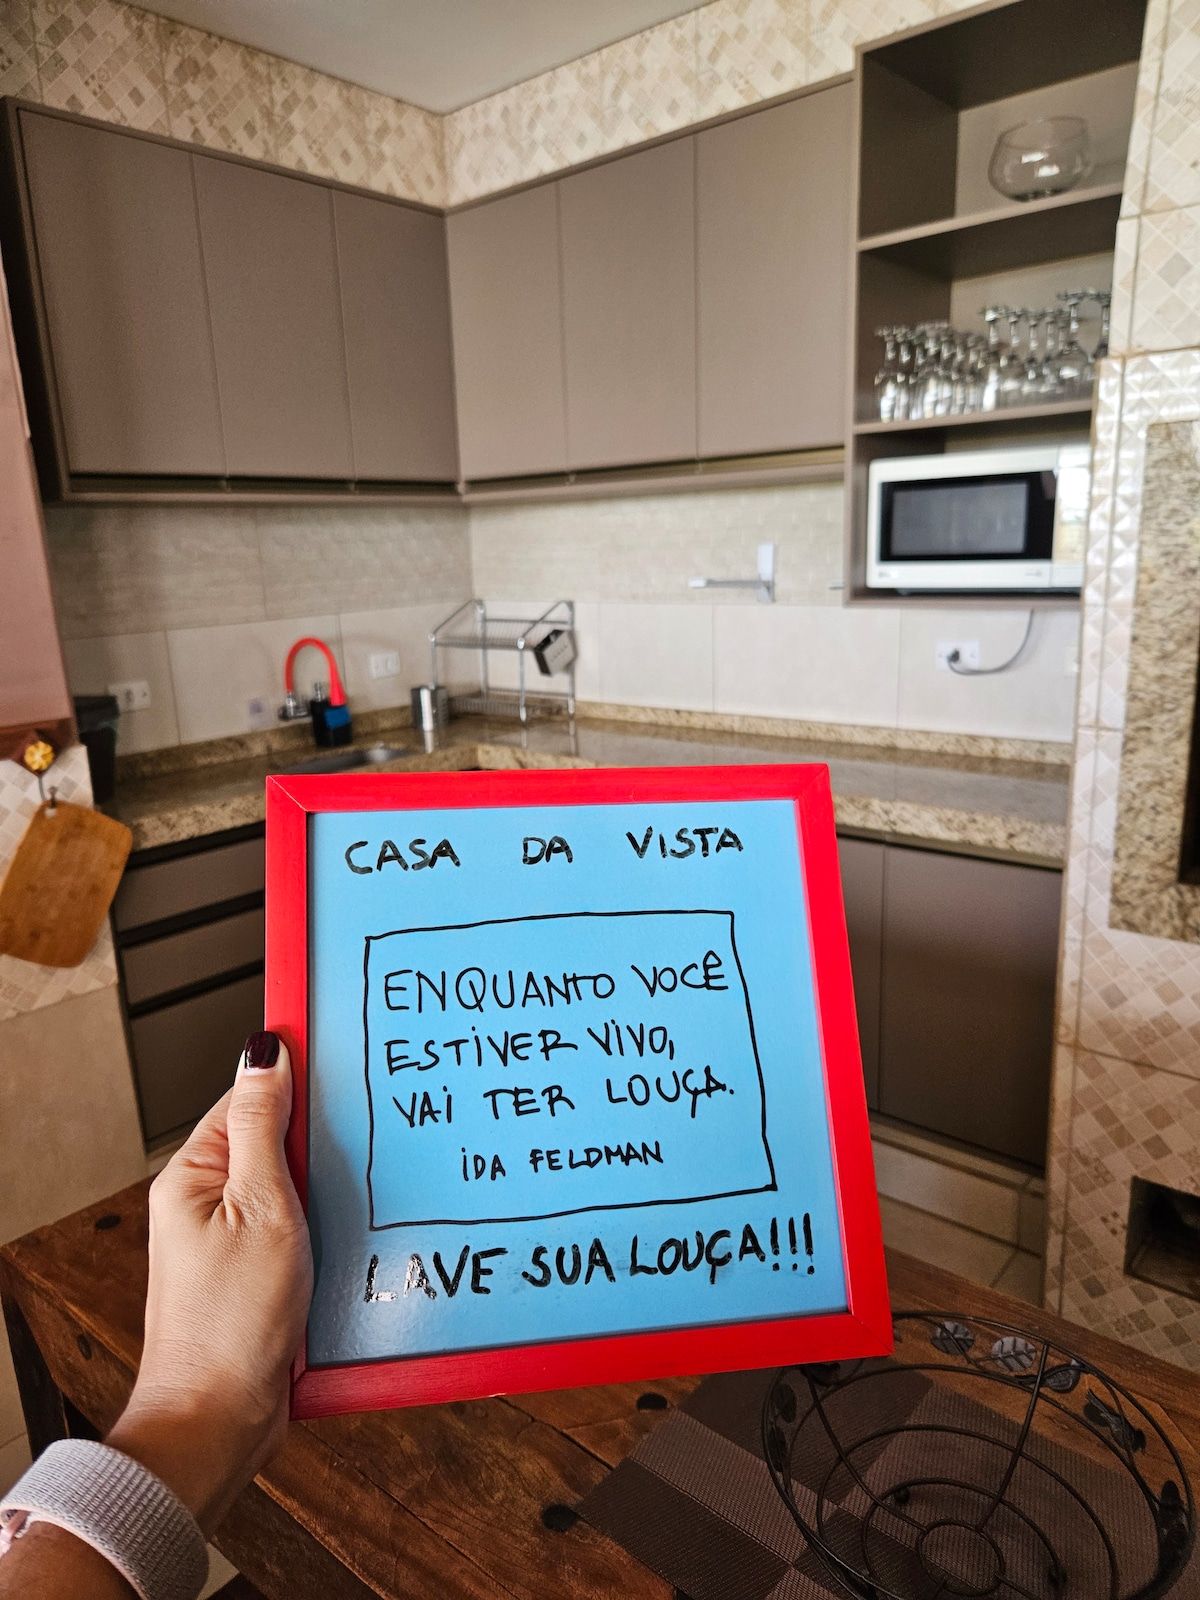 CASA DA VISTA
ENQUANTO VOCÊ
ESTIVER VIVO,
VAI TER LOUÇA.
IDA FELDMAN
LAVE SUA LOUÇA!!!